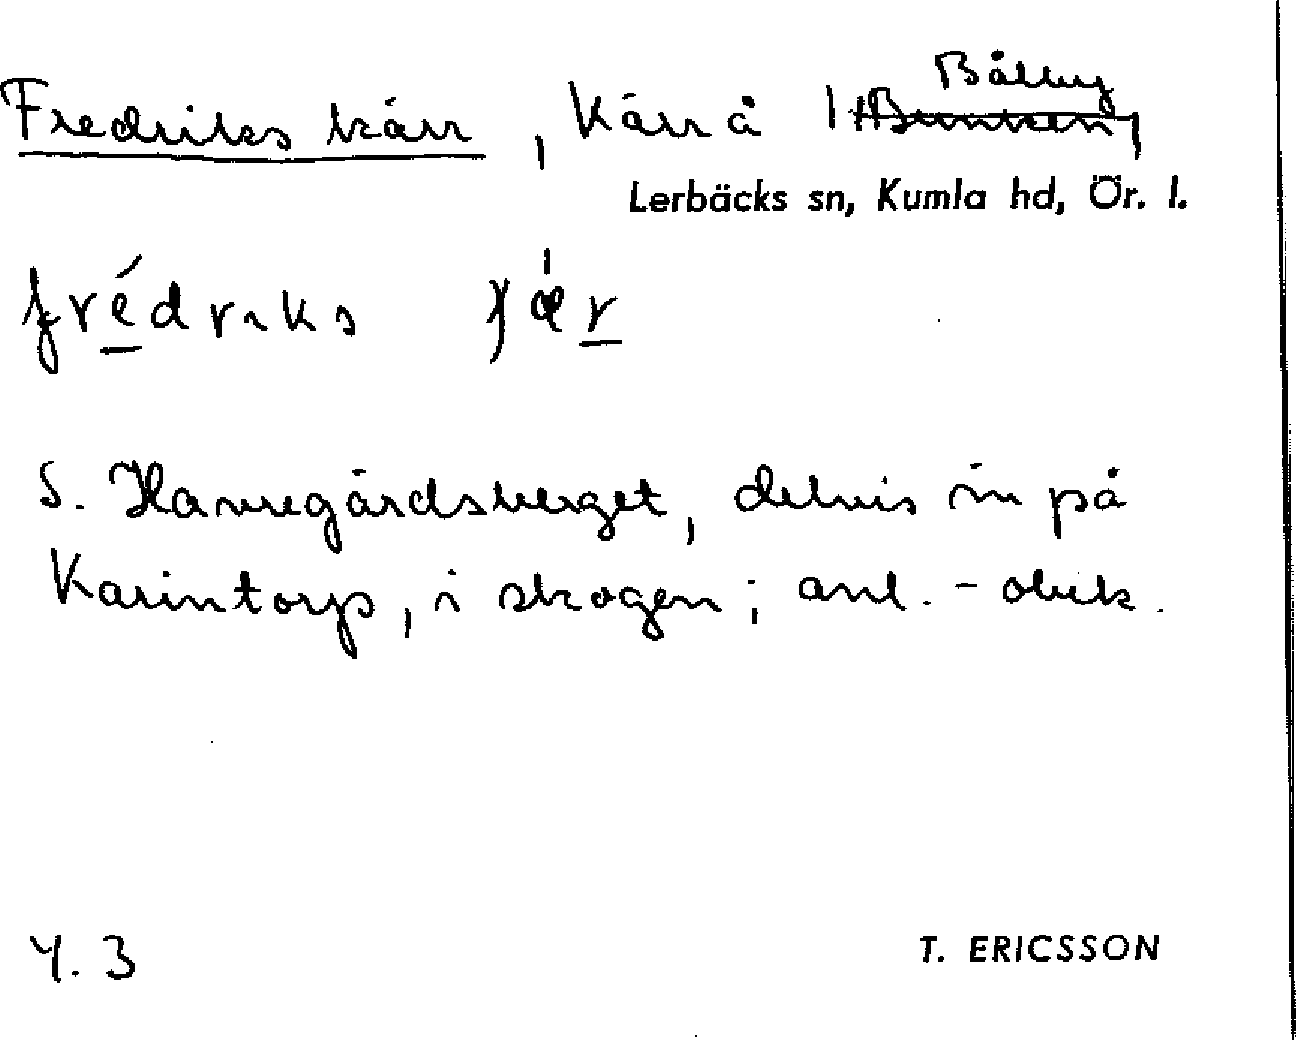 Fredriks kärr, Kärr å Bålby
Lerbäcks sn, Kumla hd, Ör. l.
frédriks
S. Hannegårdsberget, delvis in på
Karintorp, i skogen; anl. - obek.
Y. 3
T. ERICSSON